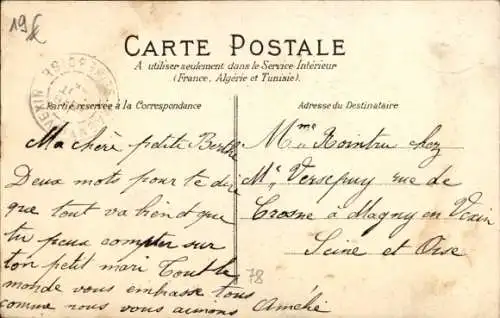 19 £
CARTE POSTALE
A utiliser seulement dans le Service Intérieur
(France, Algérie et Tunisie).
Partie réservée à la Correspondance
Adresse du Destinataire
Ma chère petite Berthe
Deux mots pour te dire
que tout va bien et que
tu peux compter sur
ton petit mari Tout le
monde vous embrasse tous
comme nous vous aimons Amélie
Mme Rointru chez
Mr Versepuy rue de
Crosne à Magny en Vexin
Seine et Oise
78
VEXIN